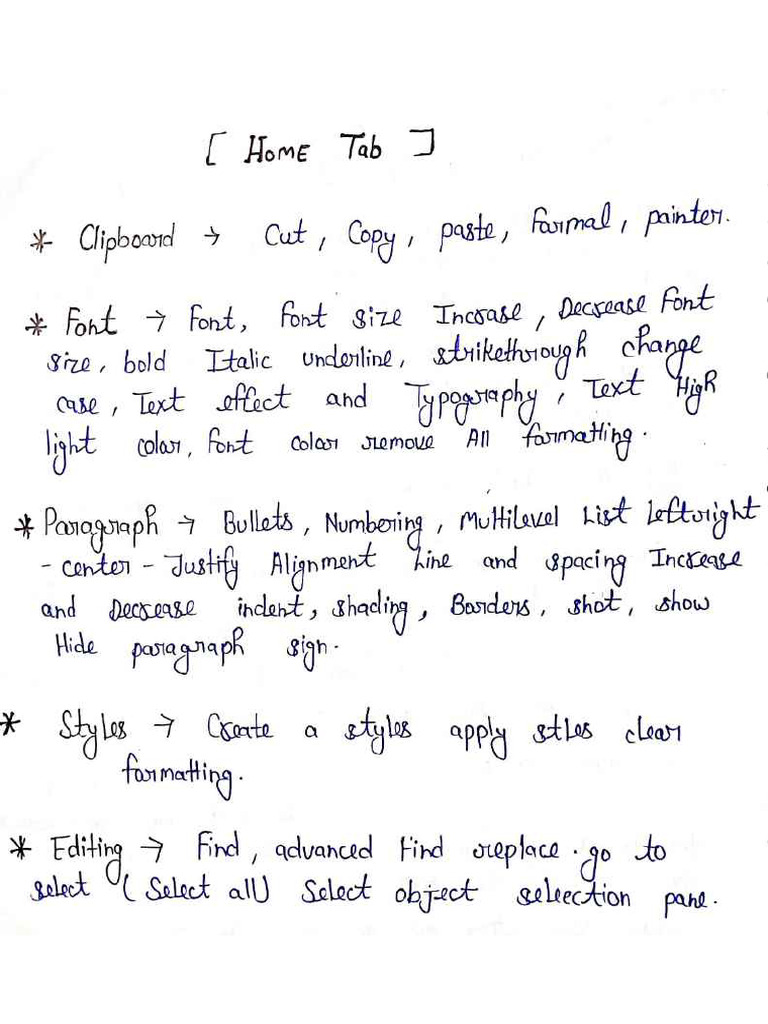 [ Home Tab ]
* Clipboard → Cut, Copy, paste, formal, painter.
* Font → Font, font size Incrase, Decrease Font
size, bold Italic underline, strikethrough change
case, Text effect and Typography, Text High
light color, font color remove All formatting.
* Paragraph → Bullets, Numbering, Multilevel List Left right
- center - Justify Alignment Line and spacing Increase
and Decrease indent, shading, Borders, shot, show
Hide paragraph sign.
* Styles → Create a styles apply stles clear
formatting.
* Editing → Find, advanced find replace. go to
select (Select all) Select object seleection pane.